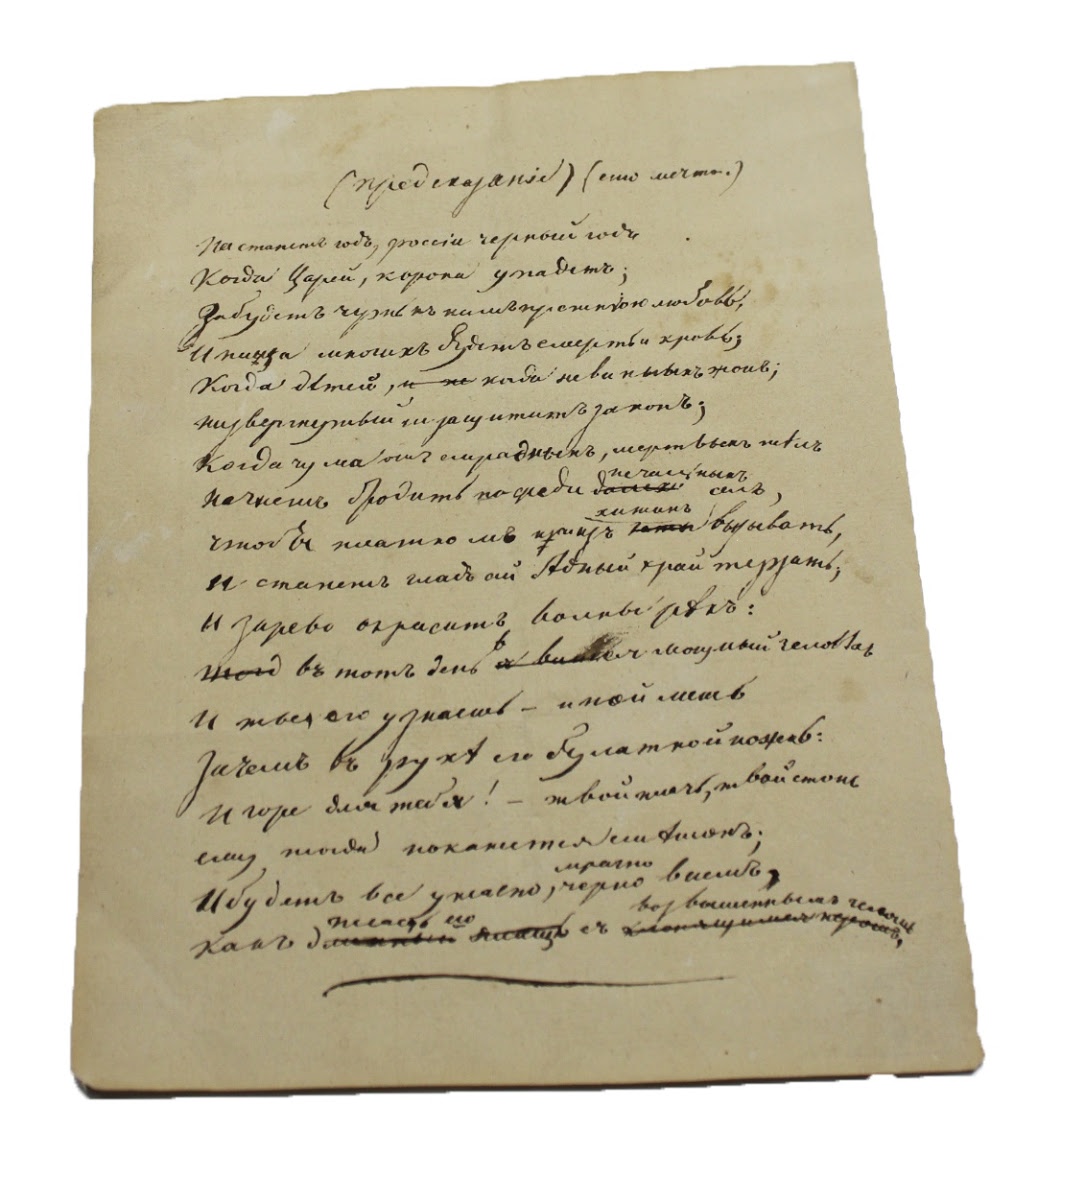 (предсказаніе) (это мечта.)
Настанетъ годъ, россіи черный годъ
Когда Царей, корона упадетъ;
Забудетъ чернь къ нимъ прежнюю любовь,
И пища многихъ будетъ смерть и кровь;
Когда дѣтей, когда невинныхъ жонъ;
низвергнутый не защититъ законъ;
Когда чума отъ смрадныхъ, мертвыхъ тѣлъ
начнетъ бродить посреди
печальныхъ
селъ,
чтобы платкомъ изъ
хижинъ
вызывать,
И станетъ гладъ сей бѣдный край терзать;
И зарево окраситъ волны рѣкъ:
въ тотъ день явится мощный человѣкъ
И ты его узнаешь – и поймешь
Зачемъ въ рукѣ его булатной ножъ:
И горе для тебя! – твой плачь, твой стонъ
ему тогда покажется смѣшонъ;
И будетъ все ужасно,
мрачно
черно въ немъ,
какъ
плащь его
съ
возвышеннымъ челомъ